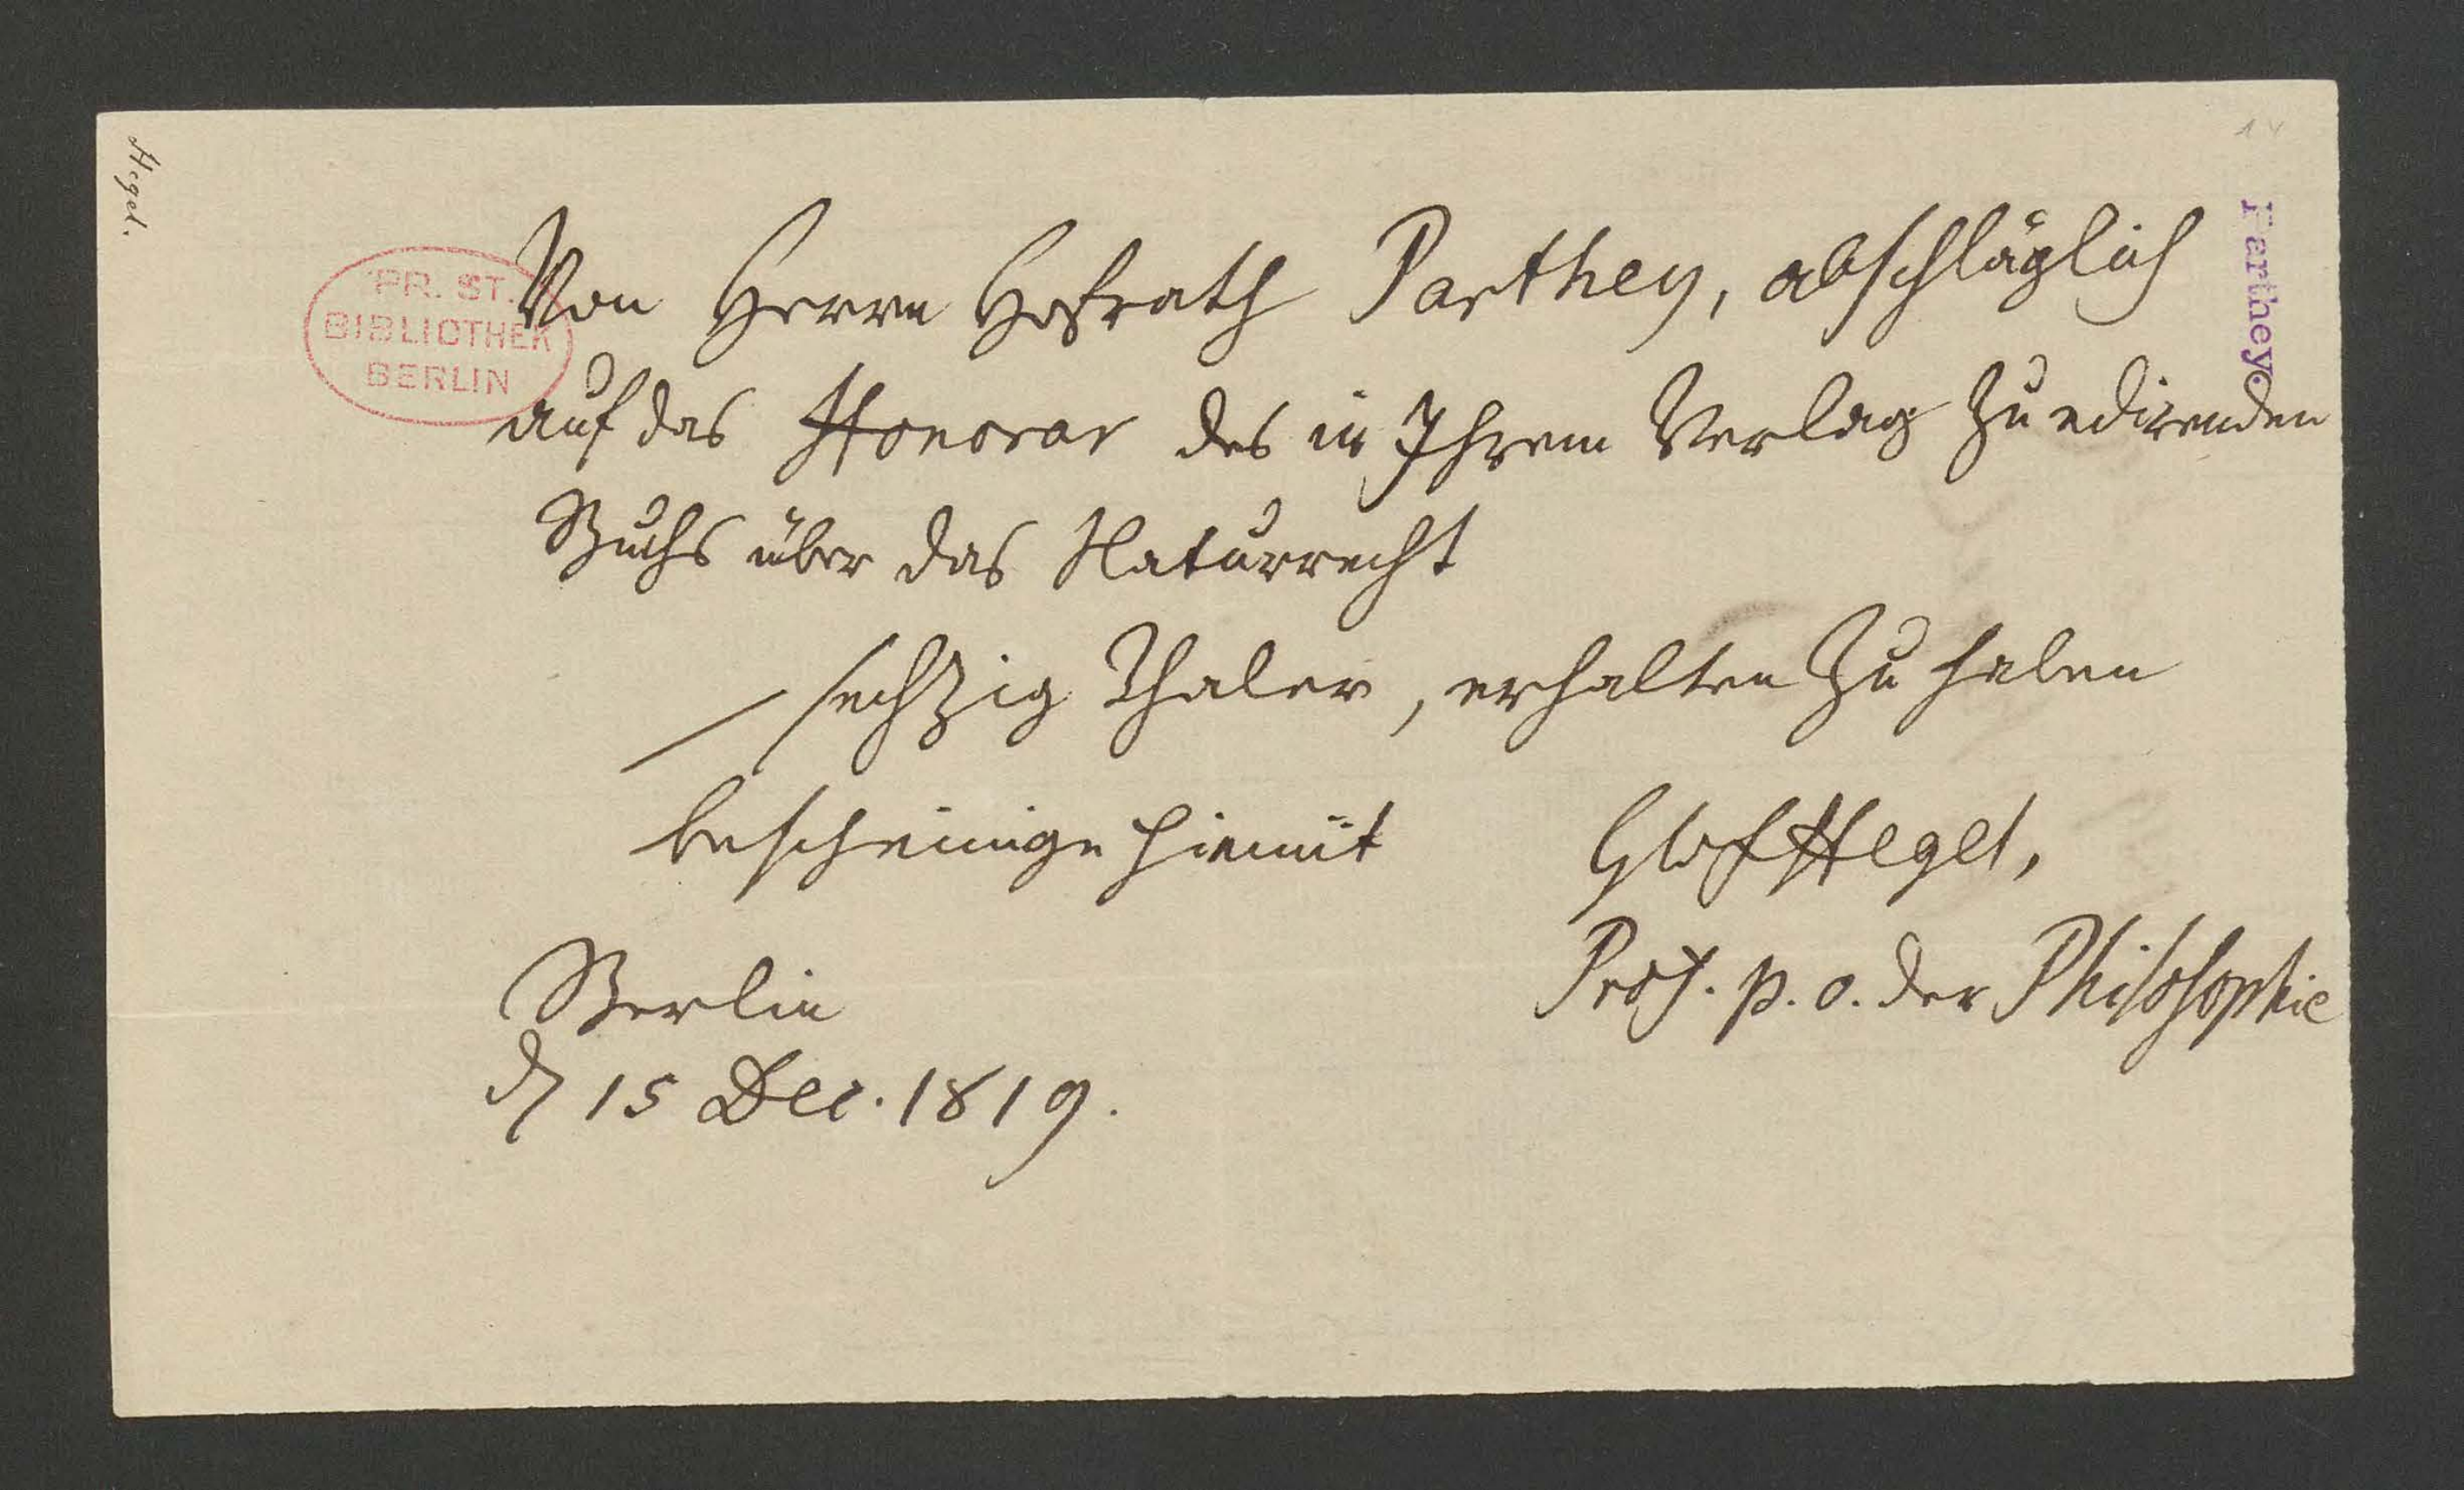 Hegel.
14
Parthey.
PR. ST.
BIBLIOTHEK
BERLIN
Von Herrn Hofrath Parthey, abschläglich
auf das Honorar des in Ihrem Verlag zu edirenden
Buchs über das Naturrecht
— sechzig Thaler, erhalten zu haben
bescheinige hiemit
GWFHegel,
Prof. p. o. der Philosophie
Berlin
d 15 Dec. 1819.